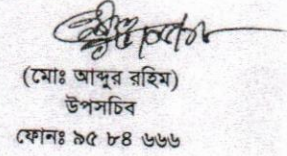 (মোঃ আব্দুর রহিম)
উপসচিব
ফোনঃ ৯৫ ৮৪ ৬৬৬